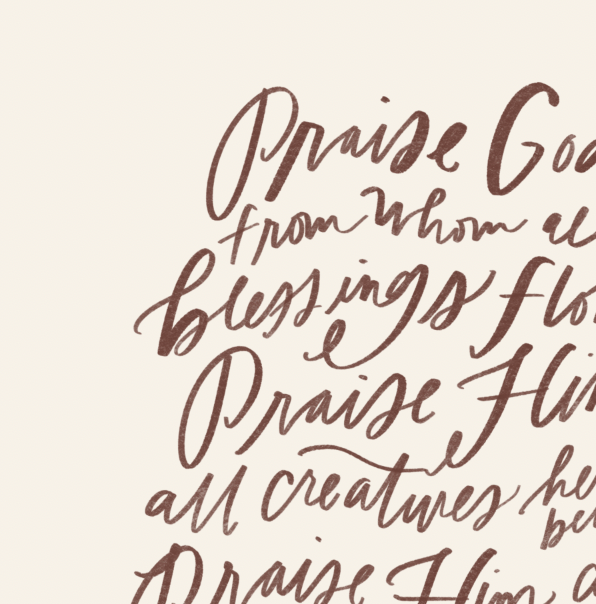 Praise God
from whom al
blessings flo
Praise Him
all creatures he
be
Praise Him a